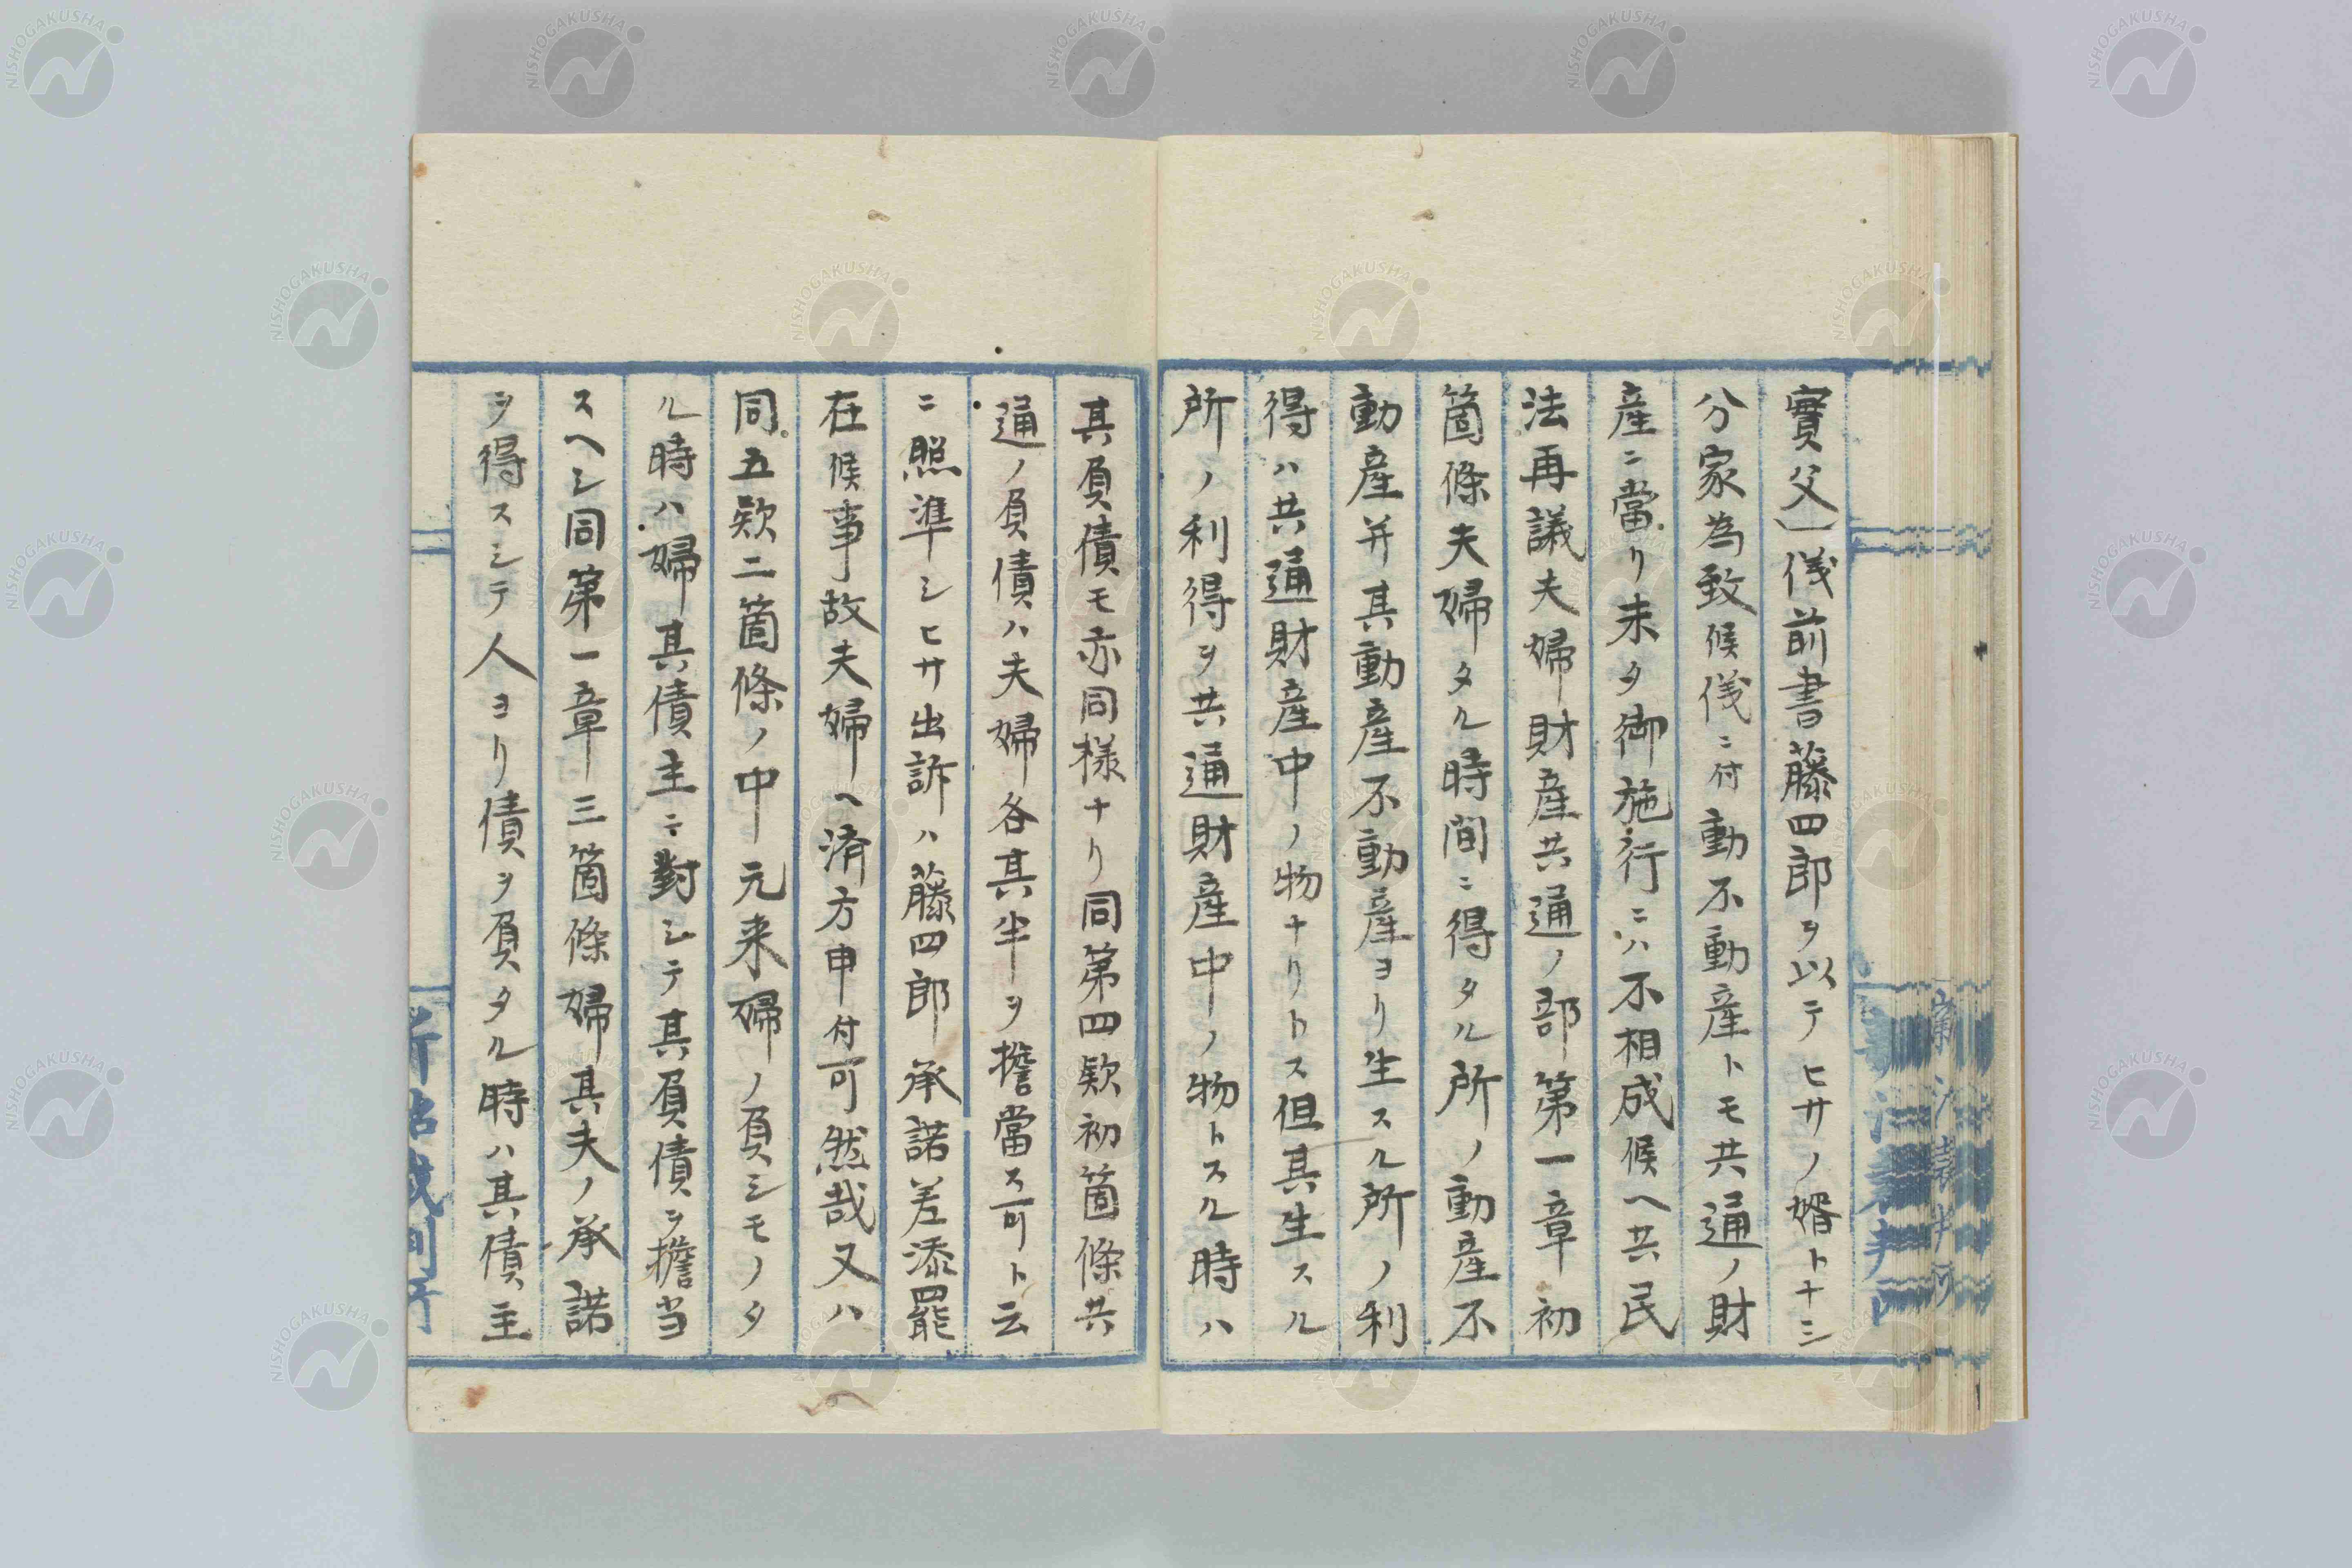 實父一儀前書藤四郎ヲ以テヒサノ婿トナシ
分家為致候儀ニ付動不動産トモ共通ノ財
産ニ當リ未タ御施行ニハ不相成候ヘ共民
法再議夫婦財産共通ノ部第一章初
箇條夫婦タル時間ニ得タル所ノ動産不
動産并其動産不動産ヨリ生スル所ノ利
得ハ共通財産中ノ物ナリトス但其生スル
所ノ利得ヲ共通財産中ノ物トスル時ハ
其負債モ亦同様ナリ同第四欵初箇條共
通ノ負債ハ夫婦各其半ヲ擔當ス可ト云
ニ照準シヒサ出訴ハ藤四郎承諾差添罷
在候事故夫婦ヘ済方申付可然哉又ハ
同五欵二箇條ノ中元来婦ノ負シモノタ
ル時ハ婦其債主ニ對シテ其負債ヲ擔当
スヘシ同第一章三箇條婦其夫ノ承諾
ヲ得スシテ人ヨリ債ヲ負タル時ハ其債主
NISHOGAKUSHA